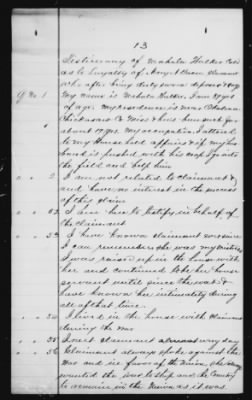 13
Testimony of Mahala Hulder Col
as to loyalty of Mary A Dean Claimant
who after being duly sworn deposed & say
Q No. 1 My name is Mahala Hulder. I am 27 years
of age. my residence is near Okolona
Chickasaw Co Miss & has been such for
about 17 yrs. my occupation I attend
to my household affairs & if my hus
band is pushed with his crop I go into
the field and help him
" " 2 I am not related to claimant &
and have no interest in the success
of this claim
" " I am here to testify in behalf of
the claimant
" " I have known claimant ever since
I can remember she was my mistress
I was raised up in the house with
her and continued to be her house
servant until since the war & I
have known her intimately during
all of that time.
" " I lived in the house with claimant
during the war
" " I met claimant every day
" " Claimant always spoke against the
war and in favor of the Union, she always
wanted the and the Country
to remain in the Union as it was